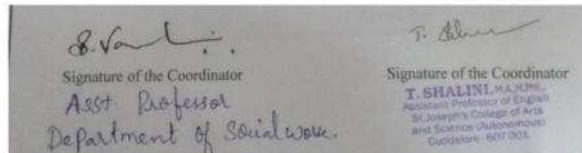 Signature of the Coordinator
Asst Professor
Department of Social work.
T. Shalini
Signature of the Coordinator
T. SHALINI, M.A., M.Phil.,
Assistant Professor of English
St. Joseph's College of Arts
and Science (Autonomous)
Cuddalore - 607 001.